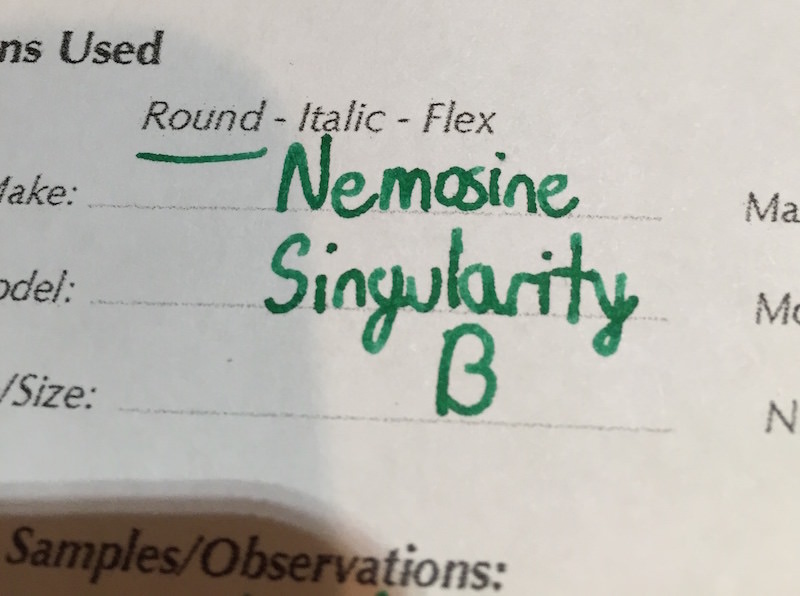 ns Used
Round - Italic - Flex
Make: Nemosine Ma
odel: Singularity Mo
/Size: B N
Samples/Observations: